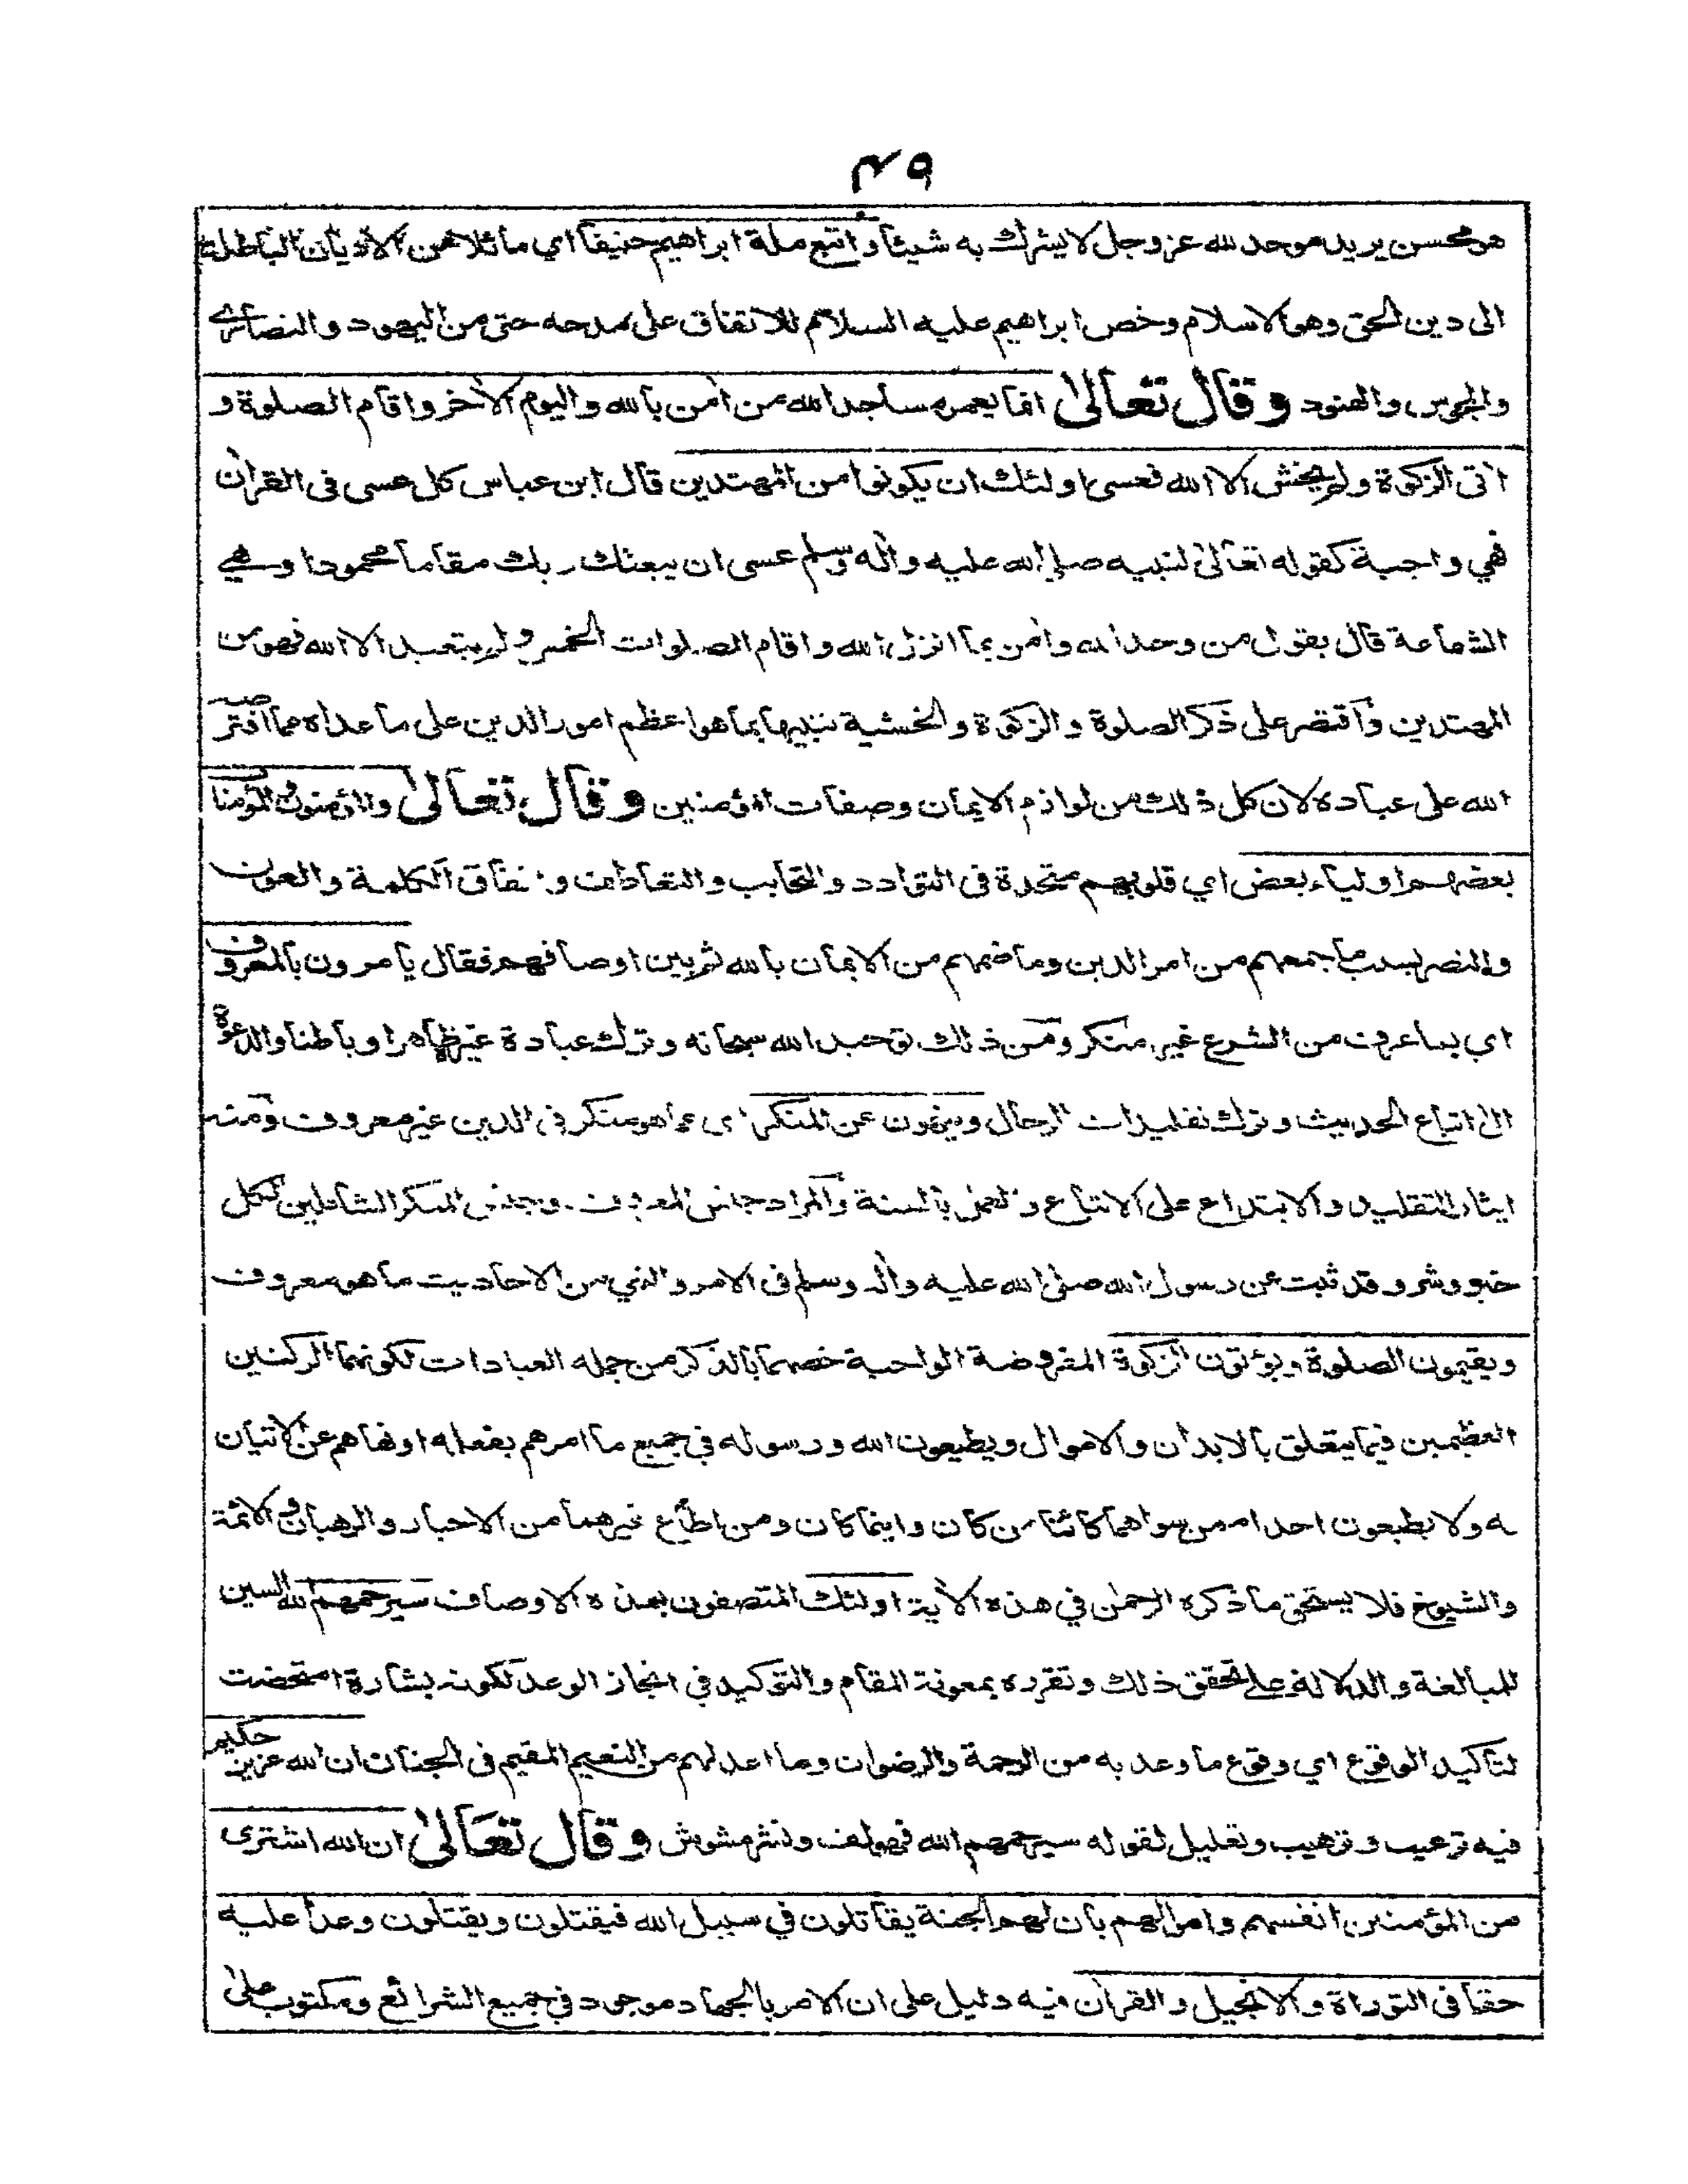 ٤٩
هو محسن يريد موحد لله عز وجل لا يشرك به شيئا واتبع ملة ابراهيم حنيفا اي مائلا عن الاديان الباطلة
الى دين الحق وهو الاسلام وخص ابراهيم عليه السلام للاتفاق على مدحه حتى من اليهود والنصارى
والمجوس والهنود وقال تعالىٰ انما يعمر مساجد الله من اٰمن بالله واليوم الاٰخر واقام الصلوة و
اٰتى الزكوة ولم يخش الا الله فعسى اولئك ان يكونوا من المهتدين قال ابن عباس كل عسى فى القراٰن
فهي واجبة كقوله تعالىٰ لنبيه صلى الله عليه واٰله وسلم عسى ان يبعثك ربك مقاما محمودا وهي
الشفاعة قال يقول من وحد الله واٰمن بما انزل الله واقام الصلوات الخمس ولم يتعبد الا الله فهو من
المهتدين واقتصر على ذكر الصلوة والزكوة والخشية تنبيها بما هو اعظم امور الدين على ما عداه مما افترضه
الله على عباده لان كل ذلك من لوازم الايمان وصفات المؤمنين وقال تعالىٰ والمؤمنون والمؤمنات
بعضهم اولياء بعض اي قلوبهم متحدة فى التوادد والتحابب والتعاطف واتفاق الكلمة والعون
والنصر بسبب ما جمعهم من امر الدين وما ضمهم من الايمان بالله ثم بين اوصافهم فقال يامرون بالمعروف
اي بما عرف من الشرع غير منكر ومن ذلك توحيد الله سبحانه وترك عبادة غيره ظاهرا وباطنا والدعوة
الى اتباع الحديث وترك تقليدات الرجال وينهون عن المنكر اى عما هو منكر فى الدين غير معروف ومنه
ايثار التقليد والابتداع على الاتباع والعمل بالسنة والمراد جنس المعروف وجنس المنكر الشاملين لكل
خير وشر وقد ثبت عن رسول الله صلى الله عليه واٰله وسلم فى الامر والنهي من الاحاديث ما هو معروف
ويقيمون الصلوة ويؤتون الزكوة المفروضة الواجبة خصهما بالذكر من جملة العبادات لكونهما الركنين
العظيمين فيما يتعلق بالابدان والاموال ويطيعون الله ورسوله في جميع ما امرهم بفعله او نهاهم عن الاتيان
به ولا يطيعون احدا ممن سواهما كائنا من كان واينما كان ومن اطاع غيرهما من الاحبار والرهبان والائمة
والشيوخ فلا يستحق ما ذكره الرحمٰن في هذه الاٰية اولئك المتصفون بهذه الاوصاف سيرحمهم الله السين
للمبالغة والدلالة على تحقق ذلك وتقرره بمعونة المقام والتوكيد في انجاز الوعد لكونه بشارة تمحضت
لتاكيد الوقوع اي وقوع ما وعد به من الرحمة والرضوان وما اعد لهم من النعيم المقيم فى الجنان ان الله عزيز حكيم
فيه ترغيب وترهيب وتعليل لقوله سيرحمهم الله فهو لف ونشر مشوش وقال تعالىٰ ان الله اشترى
من المؤمنين انفسهم واموالهم بان لهم الجنة يقاتلون في سبيل الله فيقتلون ويقتلون وعدا عليه
حقا فى التوراة والانجيل والقراٰن فيه دليل على ان الامر بالجهاد موجود في جميع الشرائع ومكتوب علىٰ